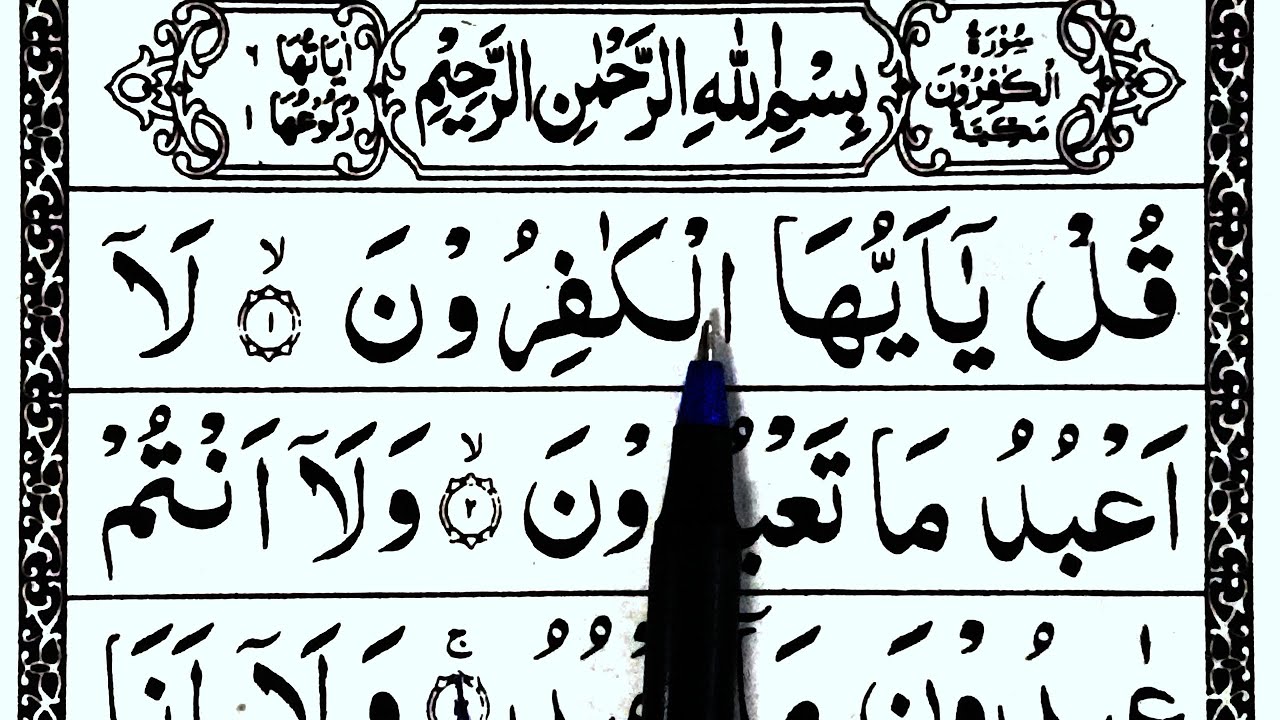 سُوْرَةُ
الْكٰفِرُوْنَ
مَكِّيَّةٌ
بِسْمِ اللهِ الرَّحْمٰنِ الرَّحِيْمِ
اٰيَاتُهَا ٦
رُكُوْعُهَا ١
قُلْ يٰٓاَيُّهَا الْكٰفِرُوْنَ ۙ ١ لَآ
اَعْبُدُ مَا تَعْبُدُوْنَ ۙ ٢ وَلَآ اَنْتُمْ
عٰبِدُوْنَ مَآ اَعْبُدُ ۚ وَلَآ اَنَا